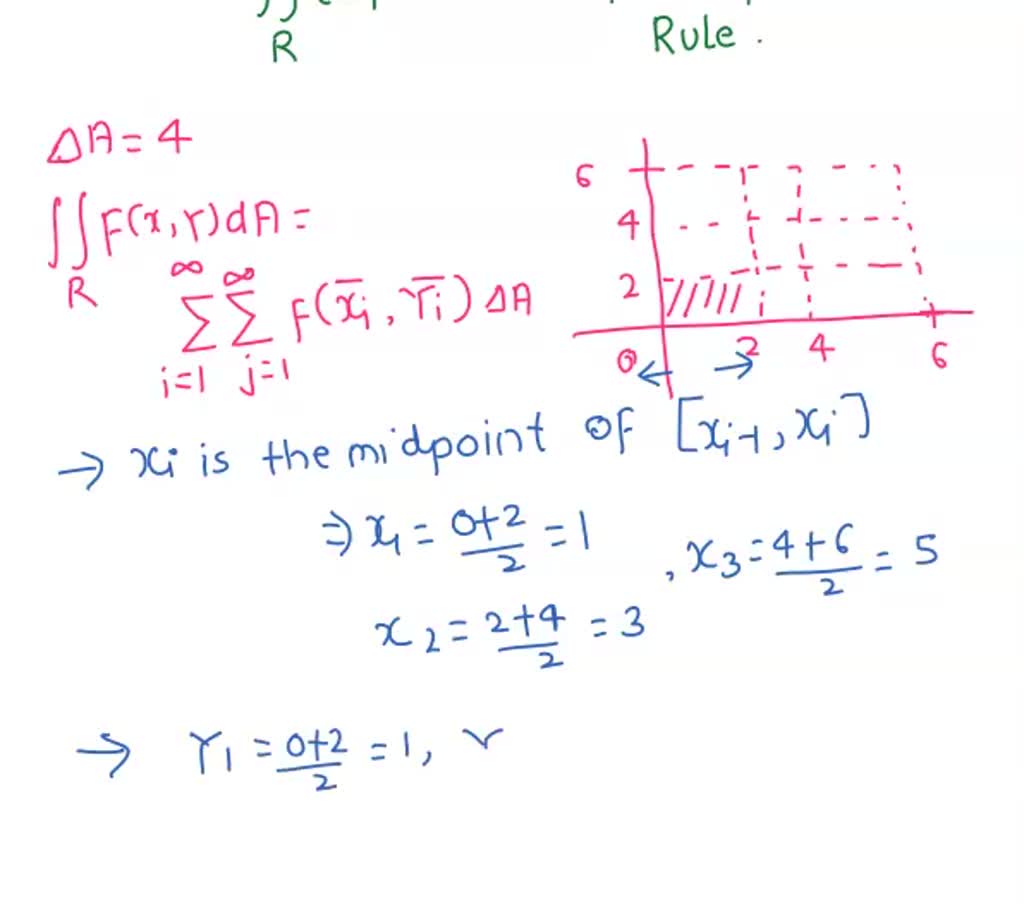 R
Rule .
ΔA = 4
∬ F(x, Y) dA =
R
∞ ∞
Σ Σ F(x̄i , Ȳi) ΔA
i=1 j=1
6
4
2
0 2 4 6
→ xi is the midpoint of [xi-1, xi]
⇒ x1 = 0+2/2 = 1
, x3 = 4+6/2 = 5
x2 = 2+4/2 = 3
→ Y1 = 0+2/2 = 1, Y